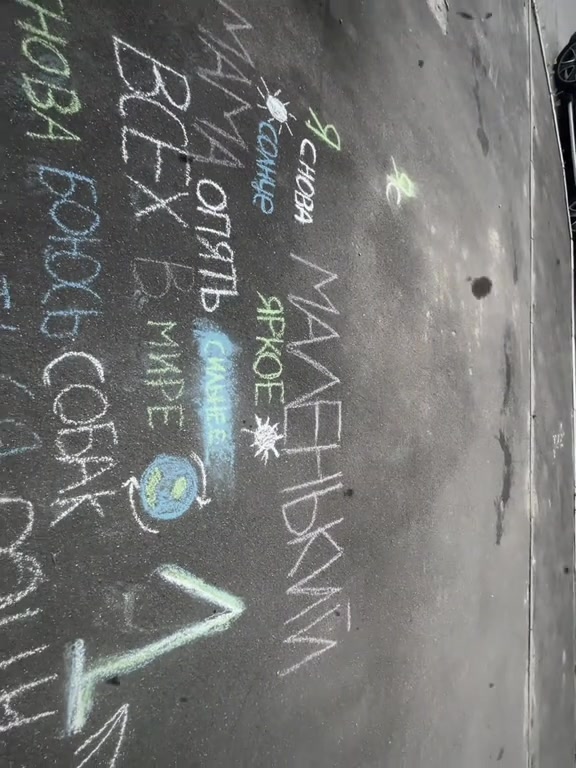 Я СНОВА МАЛЕНЬКИЙ
СОЛНЦЕ ЯРКОЕ
МАМА ОПЯТЬ СИЛЬНЕЕ
ВСЕХ В МИРЕ
НОВА БОЮСЬ СОБАК